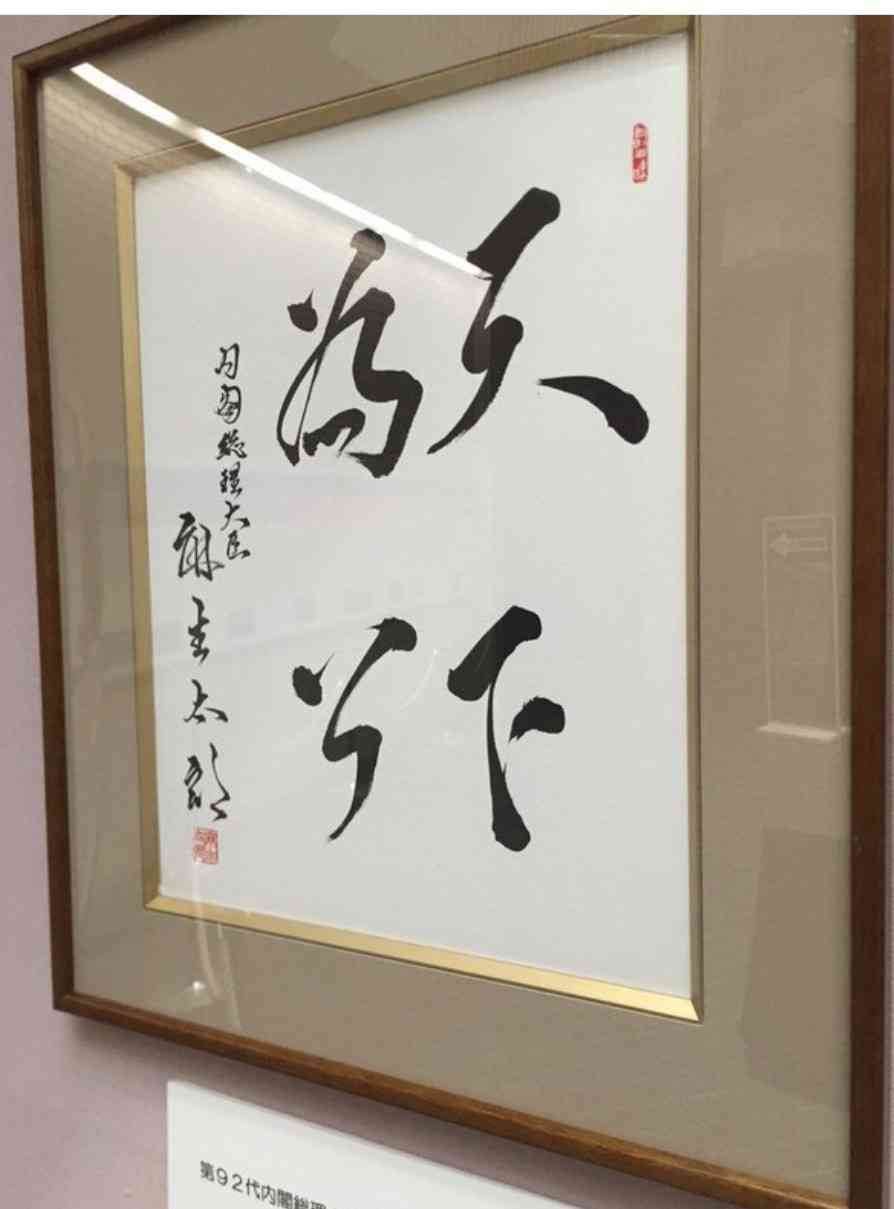 天下
為公
内閣総理大臣
麻生太郎
第92代内閣総理